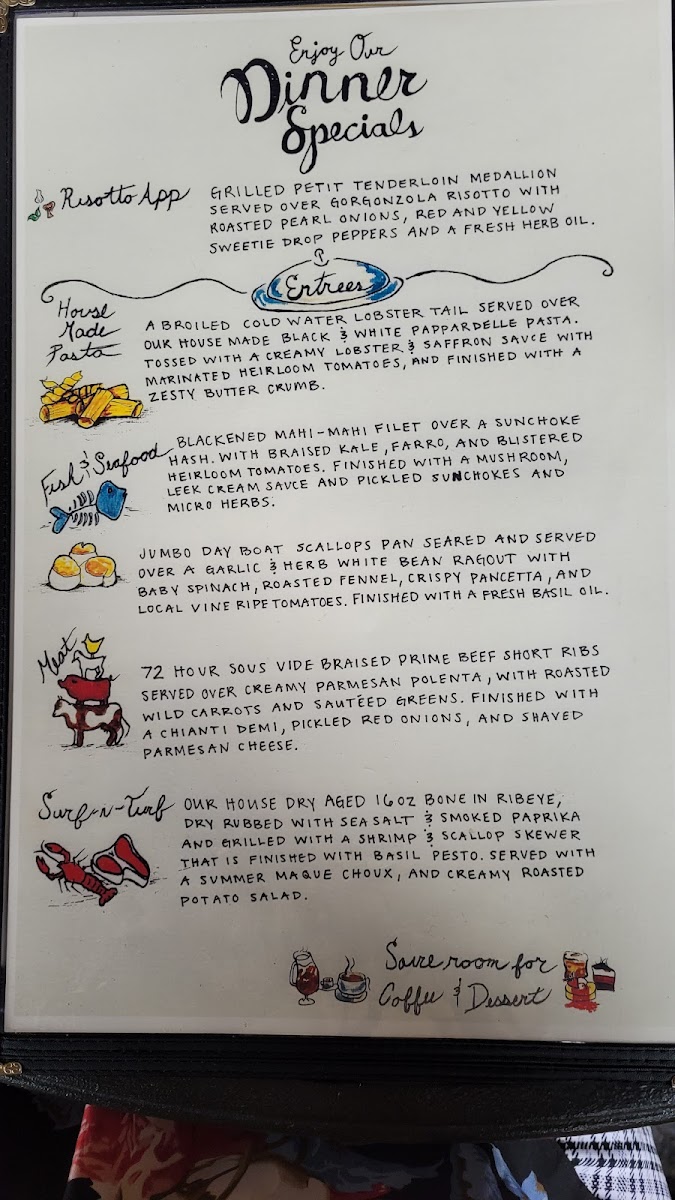 Enjoy Our
Dinner
Specials
Risotto App
GRILLED PETIT TENDERLOIN MEDALLION
SERVED OVER GORGONZOLA RISOTTO WITH
ROASTED PEARL ONIONS, RED AND YELLOW
SWEETIE DROP PEPPERS AND A FRESH HERB OIL.
Entrees
House
Made
Pasta
A BROILED COLD WATER LOBSTER TAIL SERVED OVER
OUR HOUSE MADE BLACK & WHITE PAPPARDELLE PASTA.
TOSSED WITH A CREAMY LOBSTER & SAFFRON SAUCE WITH
MARINATED HEIRLOOM TOMATOES, AND FINISHED WITH A
ZESTY BUTTER CRUMB.
Fish & Seafood
BLACKENED MAHI-MAHI FILET OVER A SUNCHOKE
HASH. WITH BRAISED KALE, FARRO, AND BLISTERED
HEIRLOOM TOMATOES. FINISHED WITH A MUSHROOM,
LEEK CREAM SAUCE AND PICKLED SUNCHOKES AND
MICRO HERBS.
JUMBO DAY BOAT SCALLOPS PAN SEARED AND SERVED
OVER A GARLIC & HERB WHITE BEAN RAGOUT WITH
BABY SPINACH, ROASTED FENNEL, CRISPY PANCETTA, AND
LOCAL VINE RIPE TOMATOES. FINISHED WITH A FRESH BASIL OIL.
Meat
72 HOUR SOUS VIDE BRAISED PRIME BEEF SHORT RIBS
SERVED OVER CREAMY PARMESAN POLENTA, WITH ROASTED
WILD CARROTS AND SAUTÉED GREENS. FINISHED WITH
A CHIANTI DEMI, PICKLED RED ONIONS, AND SHAVED
PARMESAN CHEESE.
Surf-n-Turf
OUR HOUSE DRY AGED 16 OZ BONE IN RIBEYE,
DRY RUBBED WITH SEA SALT & SMOKED PAPRIKA
AND GRILLED WITH A SHRIMP & SCALLOP SKEWER
THAT IS FINISHED WITH BASIL PESTO. SERVED WITH
A SUMMER MAQUE CHOUX, AND CREAMY ROASTED
POTATO SALAD.
Save room for
Coffee & Dessert